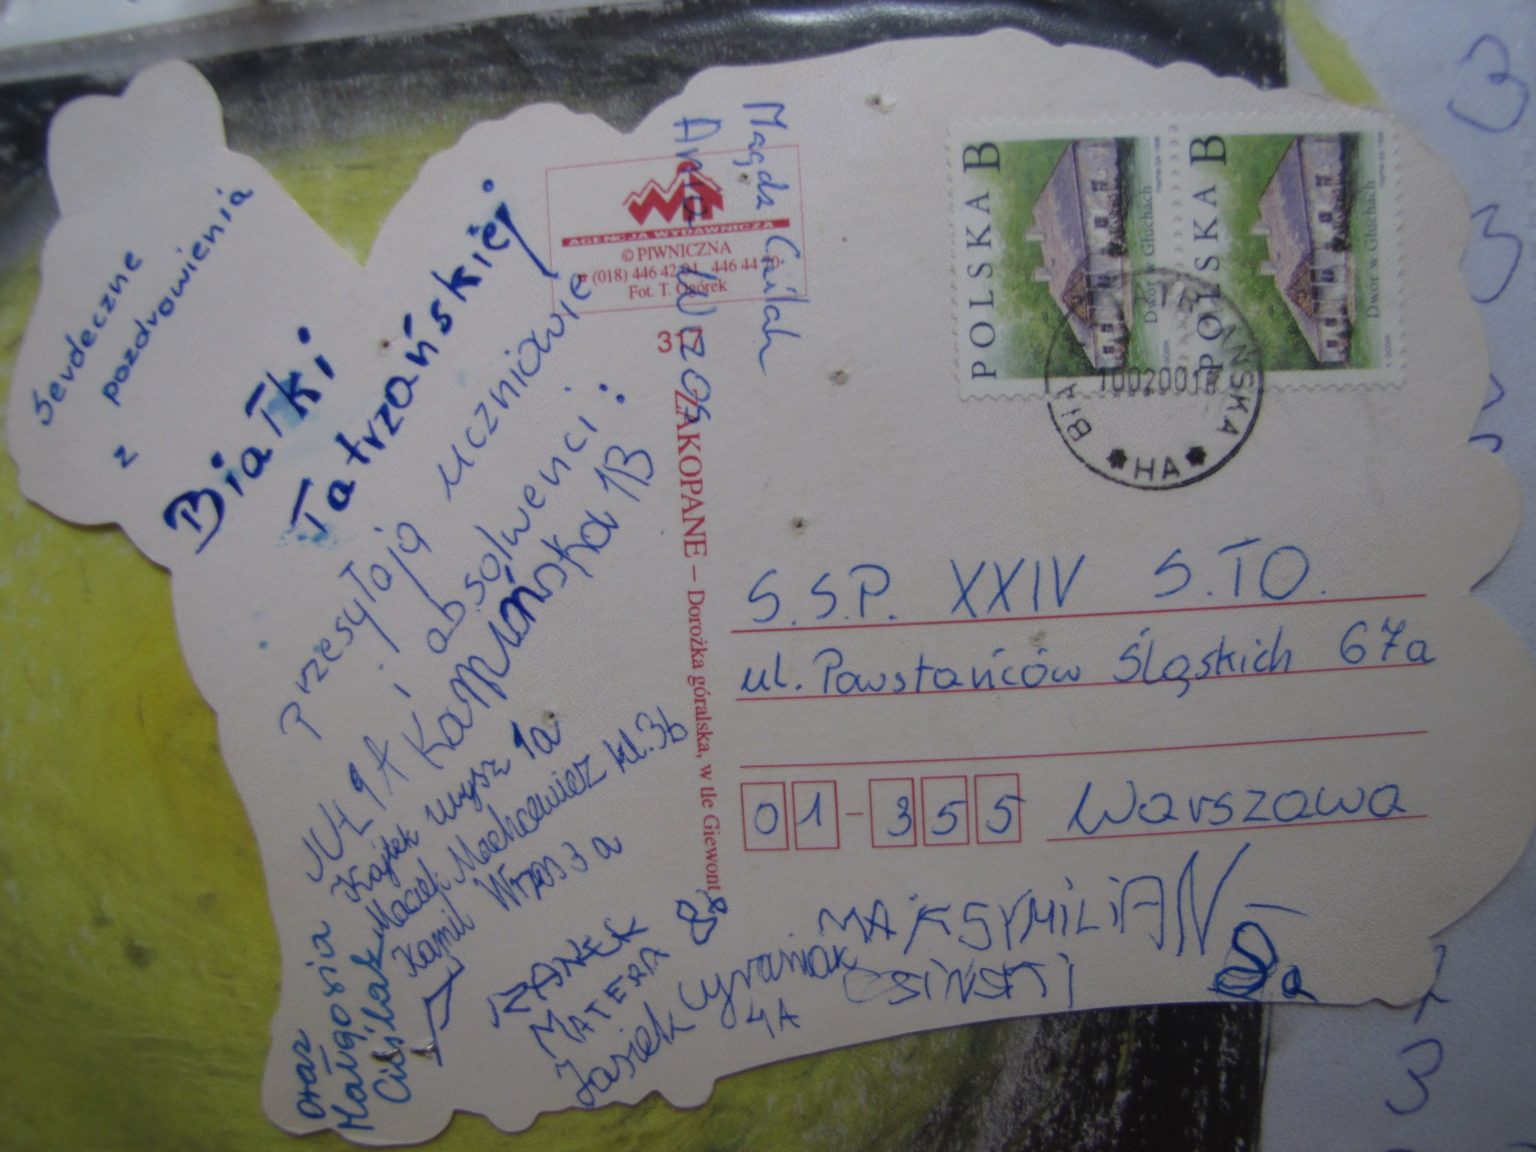 Serdeczne
pozdrowienia
z
Białki
Tatrzańskiej
Przesyłają uczniowie
i absolwenci:
Kamińska 1B
Kajtek 1a
Maciek Machcewicz kl. 3b
Kamil Wrzos 3a
oraz
Małgosia
JANEK
MATERA 8
Jasiek
4A
MAKSYMILIAN
OSIŃSKI
5a
Magda
Anna Wrzos
AGENCJA WYDAWNICZA
© PIWNICZNA
(018) 446 42 01, 446 44 70
Fot. T. Ogórek
ZAKOPANE – Dorożka góralska, w tle Giewont
POLSKA B
Dwór w Głuchach
POLSKA B
Dwór w Głuchach
HA
S.S.P. XXIV S.TO.
ul. Powstańców Śląskich 67a
01-355 Warszawa
3
3
3